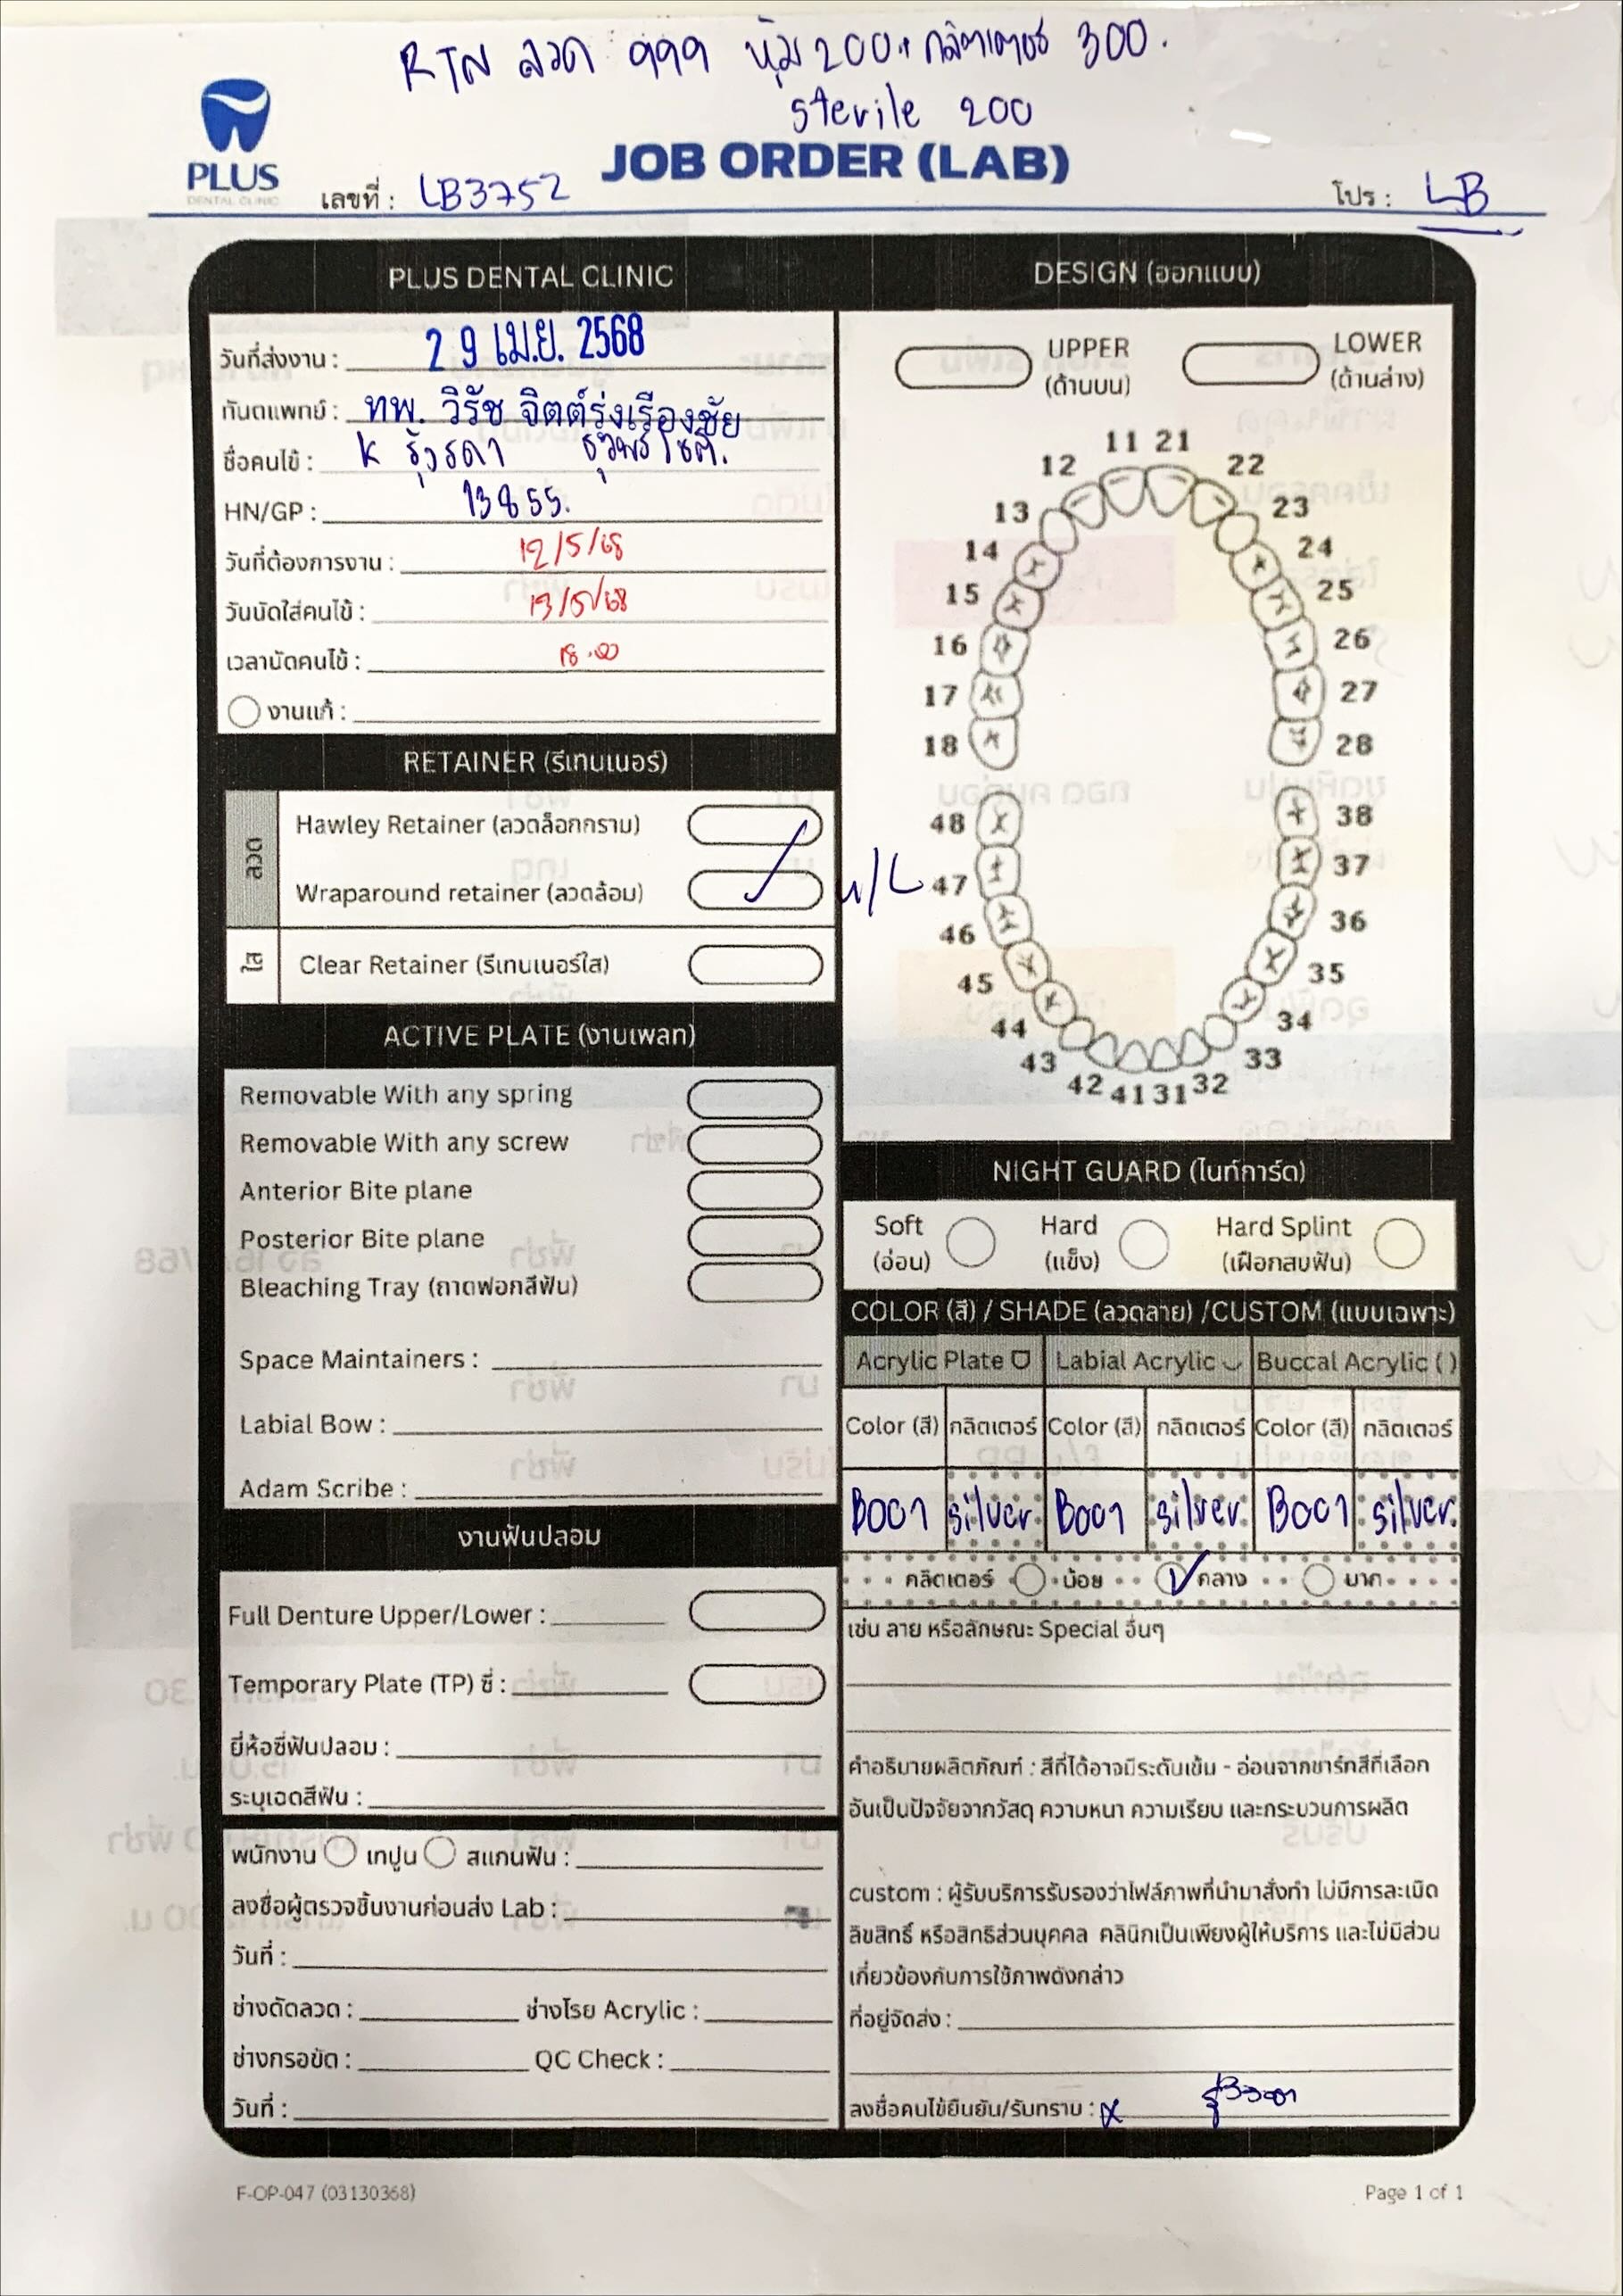 RTN ลวด 999 หุ้ม 200.+ กลิตเตอร์ 300.
sterile 200
PLUS
DENTAL CLINIC
JOB ORDER (LAB)
เลขที่ : LB3752
โปร : LB
PLUS DENTAL CLINIC
วันที่ส่งงาน : 29 เม.ย. 2568
ทันตแพทย์ : ทพ. วิรัช จิตต์รุ่งเรืองชัย
ชื่อคนไข้ : K รุ้งรดา
HN/GP : 13855.
วันที่ต้องการงาน : 12/5/68
วันนัดใส่คนไข้ : 13/5/68
เวลานัดคนไข้ : 18.00
งานแก้ :
RETAINER (รีเทนเนอร์)
ลวด
Hawley Retainer (ลวดล็อกกราม)
Wraparound retainer (ลวดล้อม) u/L
ใส
Clear Retainer (รีเทนเนอร์ใส)
ACTIVE PLATE (งานเพลท)
Removable With any spring
Removable With any screw
Anterior Bite plane
Posterior Bite plane
Bleaching Tray (ถาดฟอกสีฟัน)
Space Maintainers :
Labial Bow :
Adam Scribe :
งานฟันปลอม
Full Denture Upper/Lower :
Temporary Plate (TP) ซี่ :
ยี่ห้อซี่ฟันปลอม :
ระบุเฉดสีฟัน :
พนักงาน เทปูน สแกนฟัน :
ลงชื่อผู้ตรวจชิ้นงานก่อนส่ง Lab :
วันที่ :
ช่างดัดลวด : ช่างโรย Acrylic :
ช่างกรอขัด : QC Check :
วันที่ :
DESIGN (ออกแบบ)
UPPER
(ด้านบน)
LOWER
(ด้านล่าง)
11 21
12 22
13 23
14 24
15 25
16 26
17 27
18 28
48 38
47 37
46 36
45 35
44 34
43 33
42 41 31 32
NIGHT GUARD (ไนท์การ์ด)
Soft Hard Hard Splint
(อ่อน) (แข็ง) (เฝือกสบฟัน)
COLOR (สี) / SHADE (ลวดลาย) /CUSTOM (แบบเฉพาะ)
Acrylic Plate Labial Acrylic Buccal Acrylic ( )
Color (สี) กลิตเตอร์ Color (สี) กลิตเตอร์ Color (สี) กลิตเตอร์
B001 silver B001 silver B001 silver.
กลิตเตอร์ น้อย กลาง มาก
เช่น ลาย หรือลักษณะ Special อื่นๆ
คำอธิบายผลิตภัณฑ์ : สีที่ได้อาจมีระดับเข้ม - อ่อนจากชาร์ทสีที่เลือก
อันเป็นปัจจัยจากวัสดุ ความหนา ความเรียบ และกระบวนการผลิต
custom : ผู้รับบริการรับรองว่าไฟล์ภาพที่นำมาสั่งทำ ไม่มีการละเมิด
ลิขสิทธิ์ หรือสิทธิส่วนบุคคล คลินิกเป็นเพียงผู้ให้บริการ และไม่มีส่วน
เกี่ยวข้องกับการใช้ภาพดังกล่าว
ที่อยู่จัดส่ง :
ลงชื่อคนไข้ยืนยัน/รับทราบ : x
F-OP-047 (03130368)
Page 1 of 1